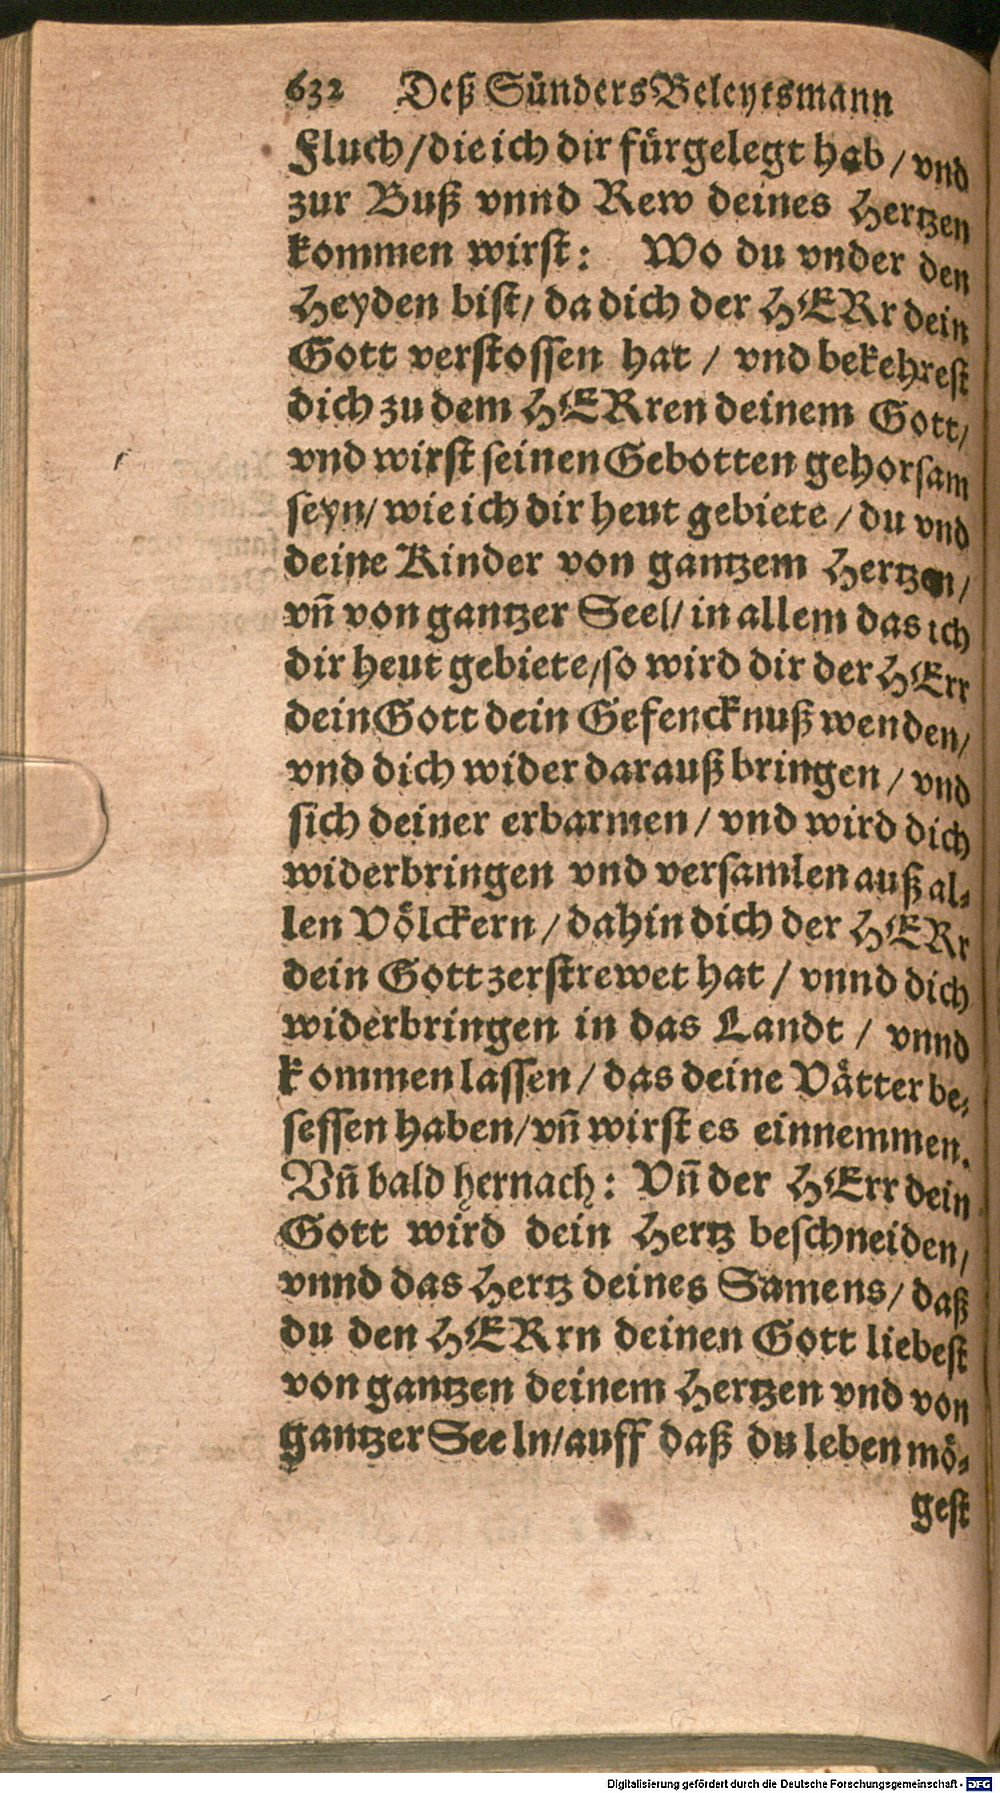 632 Deß Sünders Beleytsmann
Fluch / die ich dir fürgelegt hab / vnd
zur Buß vnnd Rew deines Hertzen
kommen wirst: Wo du vnder den
Heyden bist / da dich der HERr dein
Gott verstossen hat / vnd bekehrest
dich zu dem HERren deinem Gott /
vnd wirst seinen Gebotten gehorsam
seyn / wie ich dir heut gebiete / du vnd
deine Kinder von gantzem Hertzen /
vñ von gantzer Seel / in allem das ich
dir heut gebiete / so wird dir der HErr
dein Gott dein Gefencknuß wenden /
vnd dich wider darauß bringen / vnd
sich deiner erbarmen / vnd wird dich
widerbringen vnd versamlen auß al-
len Völckern / dahin dich der HERr
dein Gott zerstrewet hat / vnnd dich
widerbringen in das Landt / vnnd
kommen lassen / das deine Vätter be-
sessen haben / vñ wirst es einnemmen.
Vñ bald hernach: Vñ der HErr dein
Gott wird dein Hertz beschneiden /
vnnd das Hertz deines Samens / daß
du den HERrn deinen Gott liebest
von gantzen deinem Hertzen vnd von
gantzer Seeln / auff daß du leben mö-
gest
Digitalisierung gefördert durch die Deutsche Forschungsgemeinschaft - DFG